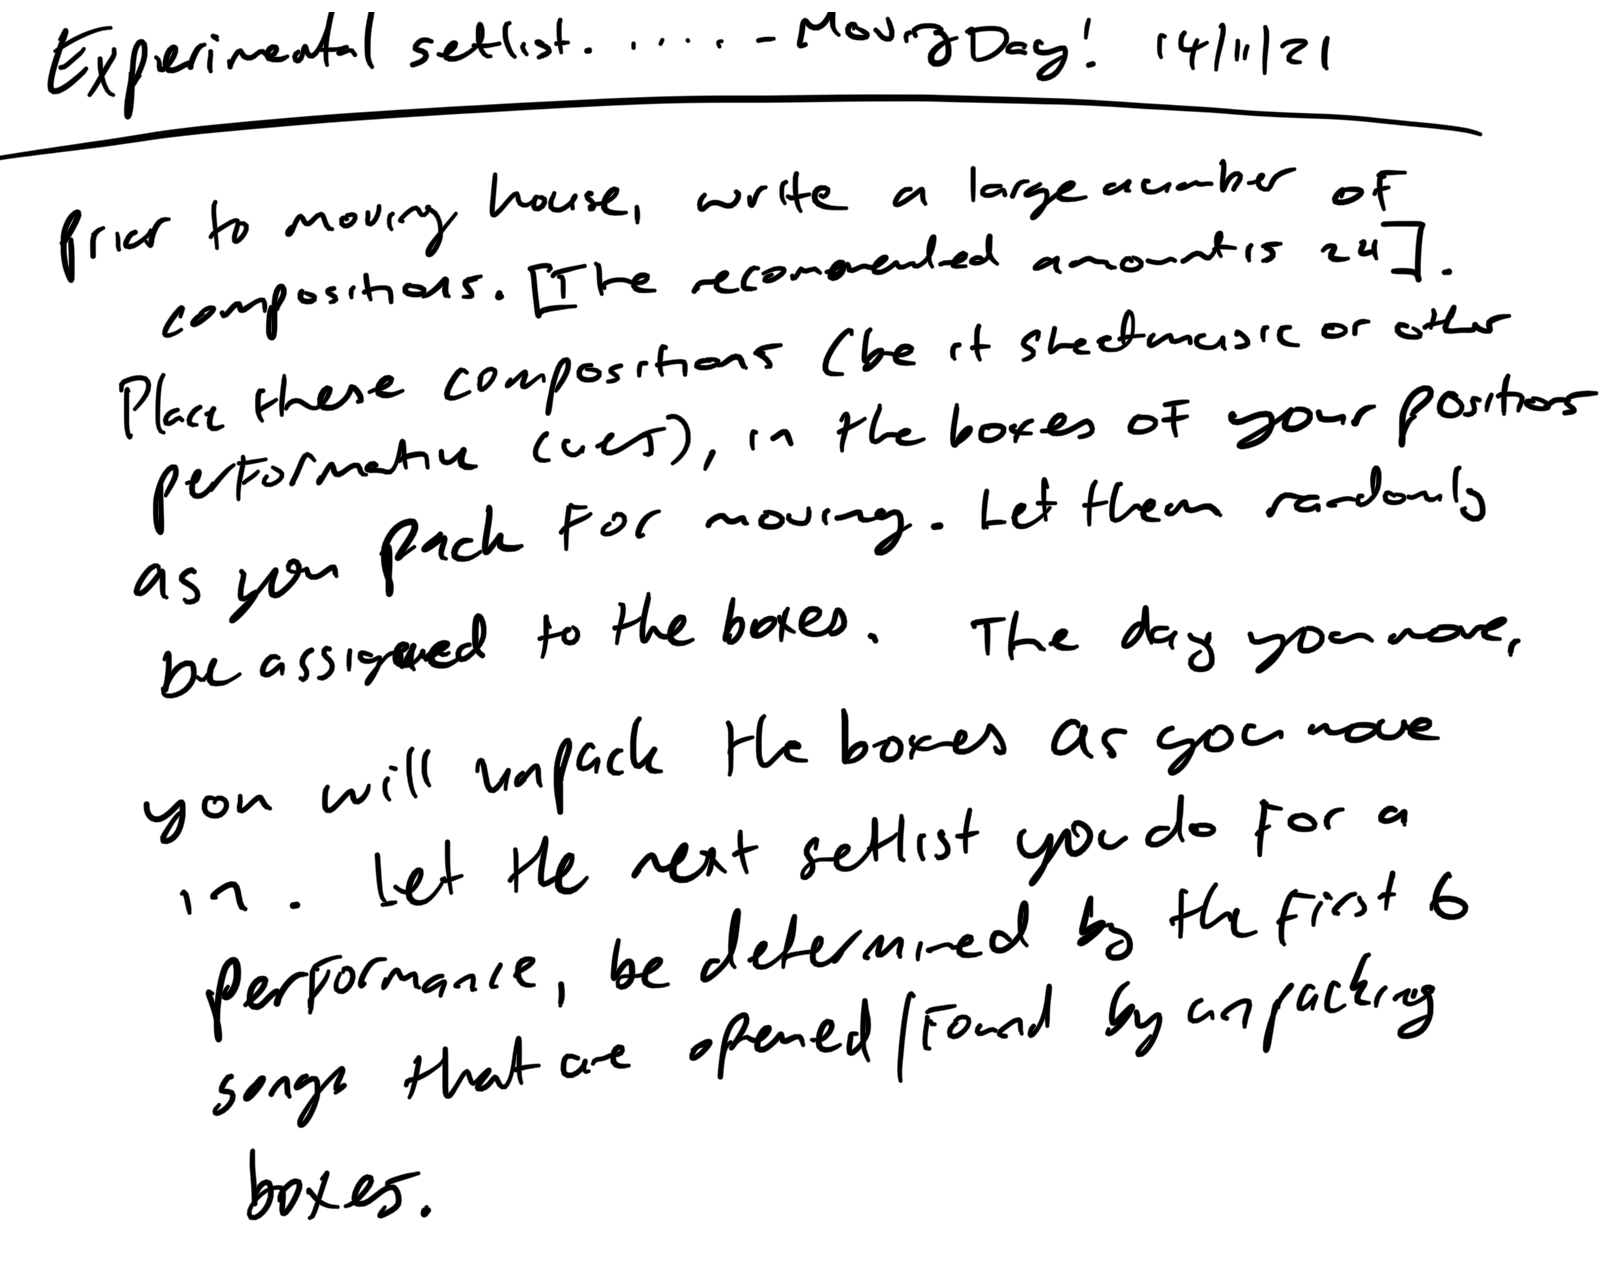 Experimental setlist. ..... - Moving Day! 14/11/21
Prior to moving house, write a large number of
compositions. [The recommended amount is 24].
Place these compositions (be it sheetmusic or other
performative cues), in the boxes of your positions
as you pack for moving. Let them randomly
be assigned to the boxes. The day you move,
you will unpack the boxes as you move
in. Let the next setlist you do for a
performance, be determined by the first 6
songs that are opened/found by unpacking
boxes.